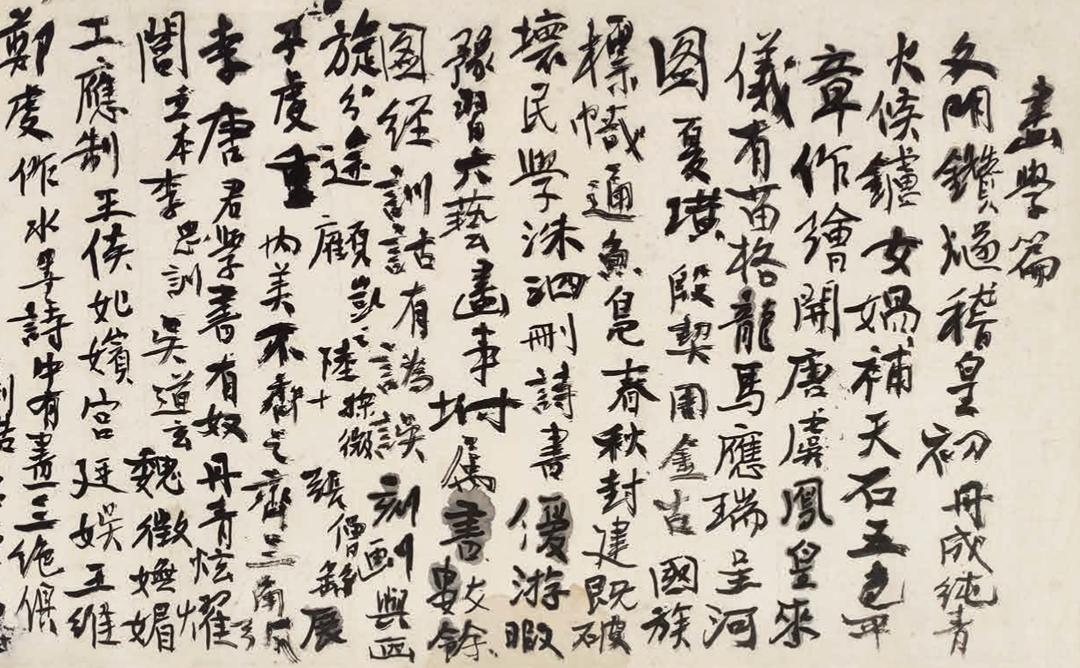 畫學篇
文明鑽燧稽皇初丹成純青
火候鑪女媧補天石五色
章作繪開唐虞鳳皇來
儀有苗格龍馬應瑞呈河
圖夏璜殷契周金古國族
標幟通魚鳧春秋封建既破
壞民學洙泗刪詩書優游暇
豫習六藝畫事附屬書數餘
圖經訓詁有為言詁誤刻劃與畫
旋分途顧愷之陸探微張僧繇展
子虔重內美不齊三
李唐君學書有奴丹青炫燿
閻立本李思訓吳道玄魏徵嫵媚
工應制王侯妃嬪宮廷娛王維
鄭虔作水墨詩中有畫三絕俱